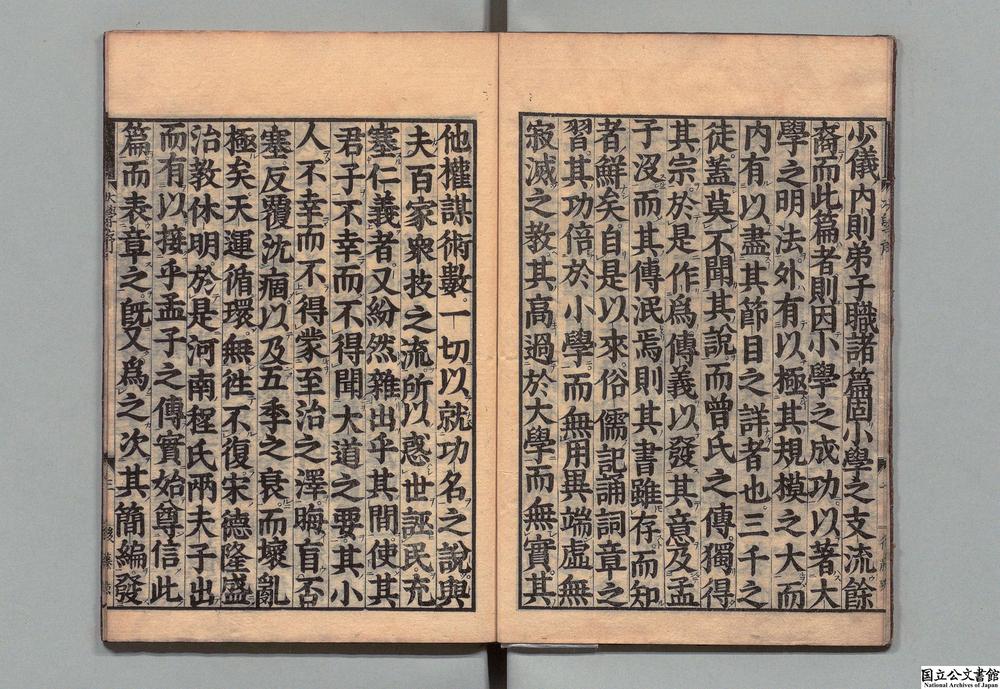 少儀内則弟子職諸篇固小學之支流餘
裔而此篇者則因小學之成功以著大
學之明法外有以極其規模之大而
内有以盡其節目之詳者也三千之
徒蓋莫不聞其說而曾氏之傳獨得
其宗於是作爲傳義以發其意及孟
子沒而其傳泯焉則其書雖存而知
者鮮矣自是以來俗儒記誦詞章之
習其功倍於小學而無用異端虛無
寂滅之教其高過於大學而無實其
他權謀術數一切以就功名之說與
夫百家衆技之流所以惑世誣民充
塞仁義者又紛然雜出乎其間使其
君子不幸而不得聞大道之要其小
人不幸而不得蒙至治之澤晦盲否
塞反覆沈痼以及五季之衰而壞亂
極矣天運循環無徃不復宋德隆盛
治教休明於是河南程氏兩夫子出
而有以接乎孟子之傳實始尊信此
篇而表章之旣又爲之次其簡編發
国立公文書館
National Archives of Japan